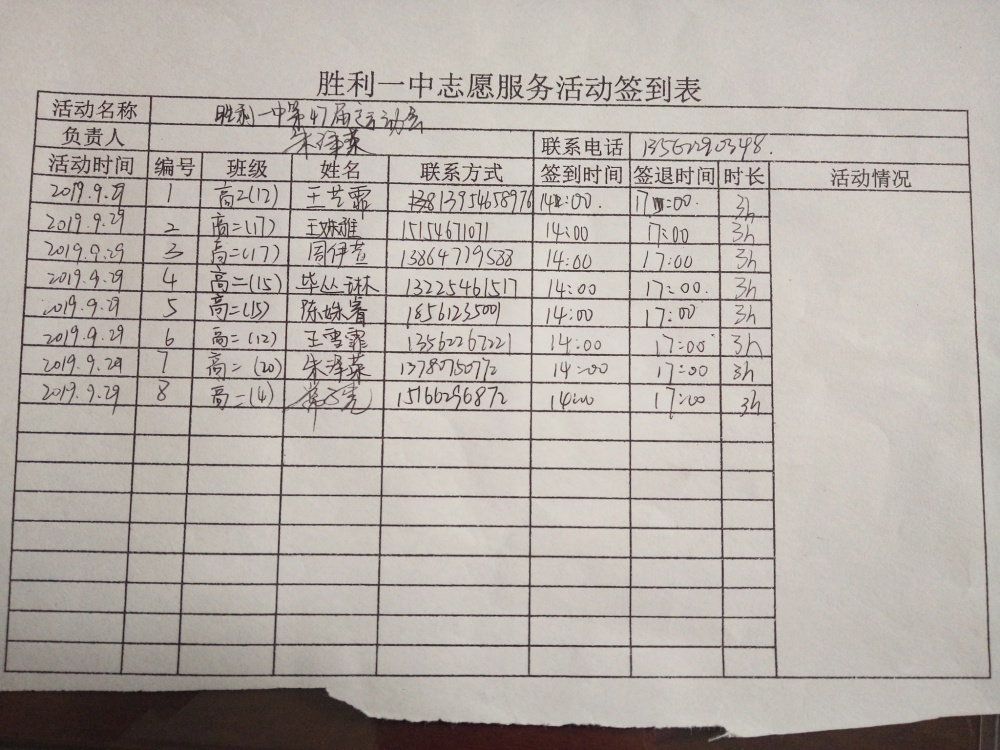 胜利一中志愿服务活动签到表
活动名称 胜利一中第47届运动会
负责人 朱泽菜 联系电话 13562290348.
活动时间 编号 班级 姓名 联系方式 签到时间 签退时间 时长 活动情况
2019.9.29 1 高二(12) 王艺霏 13954658976 14:00. 17:00. 3h
2019.9.29 2 高二(17) 王姝雅 15154671071 14:00 17:00 3h
2019.9.29 3 高二(17) 周伊萱 13864779588 14:00 17:00 3h
2019.9.29 4 高二(15) 毕丛琳 13225461517 14:00 17:00. 3h
2019.9.29 5 高二(15) 陈姝睿 18561235001 14:00 17:00 3h
2019.9.29 6 高二(12) 王雪霏 13562267221 14:00 17:00 3h
2019.9.29 7 高二(20) 朱泽菜 13780750772 14:00 17:00 3h
2019.9.29 8 高二(4) 15166296872 14:00 17:00 3h